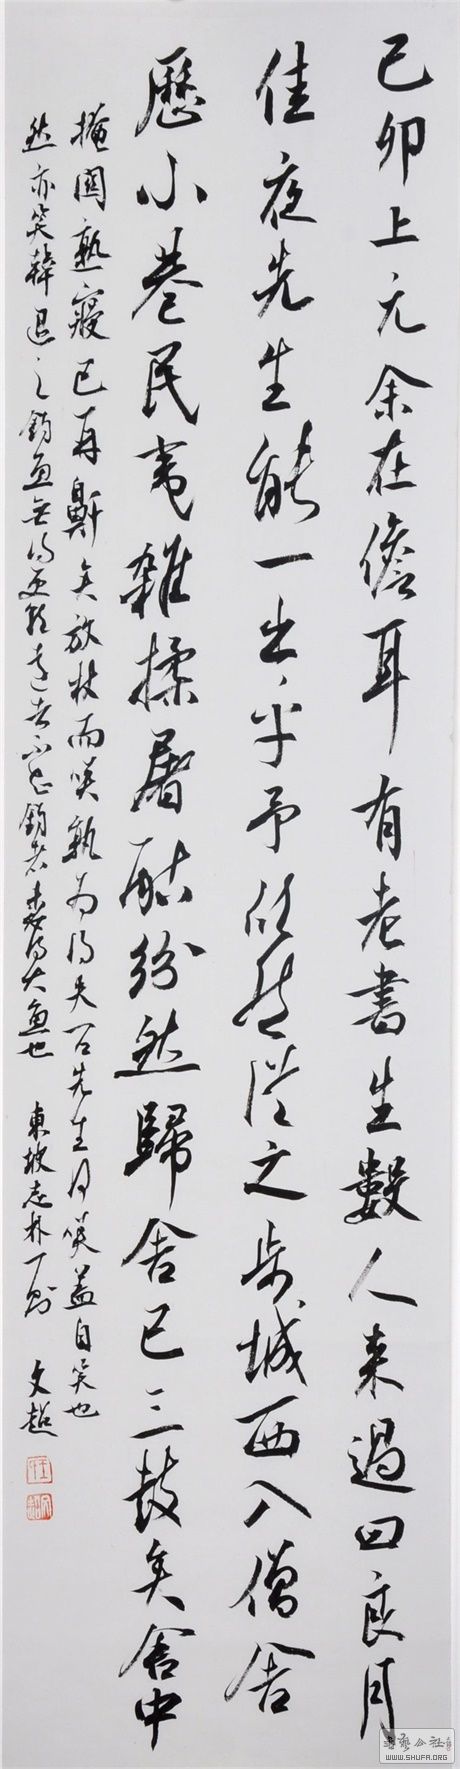 己卯上元余在儋耳有老書生數人来過曰良月
佳夜先生能一出乎予欣然從之步城西入僧舍
歷小巷民夷雜揉屠酤紛然歸舍已三鼓矣舍中
掩關熟寢已再鼾矣放杖而笑孰为得失问先生何笑盖自笑也
然亦笑韓退之釣魚無得更欲遠去不知釣者未必得大魚也 東坡志林一則 文超
书艺公社
WWW.SHUFA.ORG